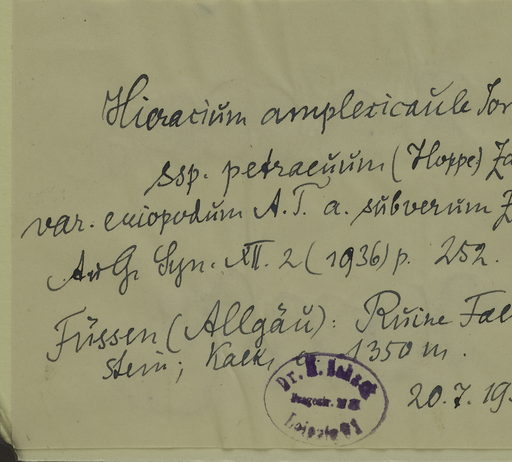 Hieracium amplexicaule
ssp. petraeum (Hoppe)
var. eriopodum A.T. a. subverum
AuG. Syn. XII. 2 (1936) p. 252.
Füssen (Allgäu): Ruine Fal
stein; Kalk, c. 1350 m.
20.7.19
Dr.
Leipzig